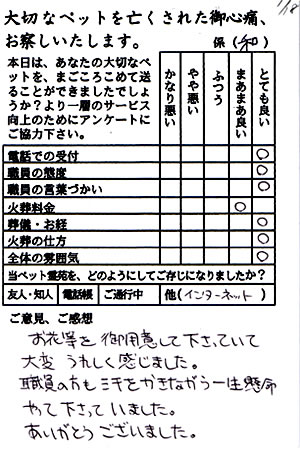 1/18
大切なペットを亡くされた御心痛、
お察しいたします。
係(和)
本日は、あなたの大切なペットを、まごころこめて送ることができましたでしょうか?より一層のサービス向上のためにアンケートにご協力下さい。
かなり悪い
やや悪い
ふつう
まあまあ良い
とても良い
電話での受付 ○
職員の態度 ○
職員の言葉づかい ○
火葬料金 ○
葬儀・お経 ○
火葬の仕方 ○
全体の雰囲気 ○
当ペット霊苑を、どのようにしてご存じになりましたか?
友人・知人 電話帳 ご通行中 他(インターネット)
ご意見、ご感想
お花等を御用意して下さっていて
大変うれしく感じました。
職員の方も汗をかきながら一生懸命
やって下さっていました。
ありがとうございました。